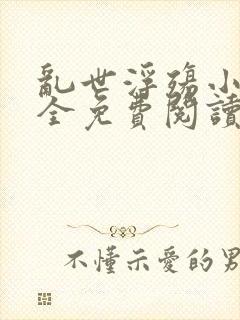 亂世浮殤小
全免費閱讀
不懂示愛的男